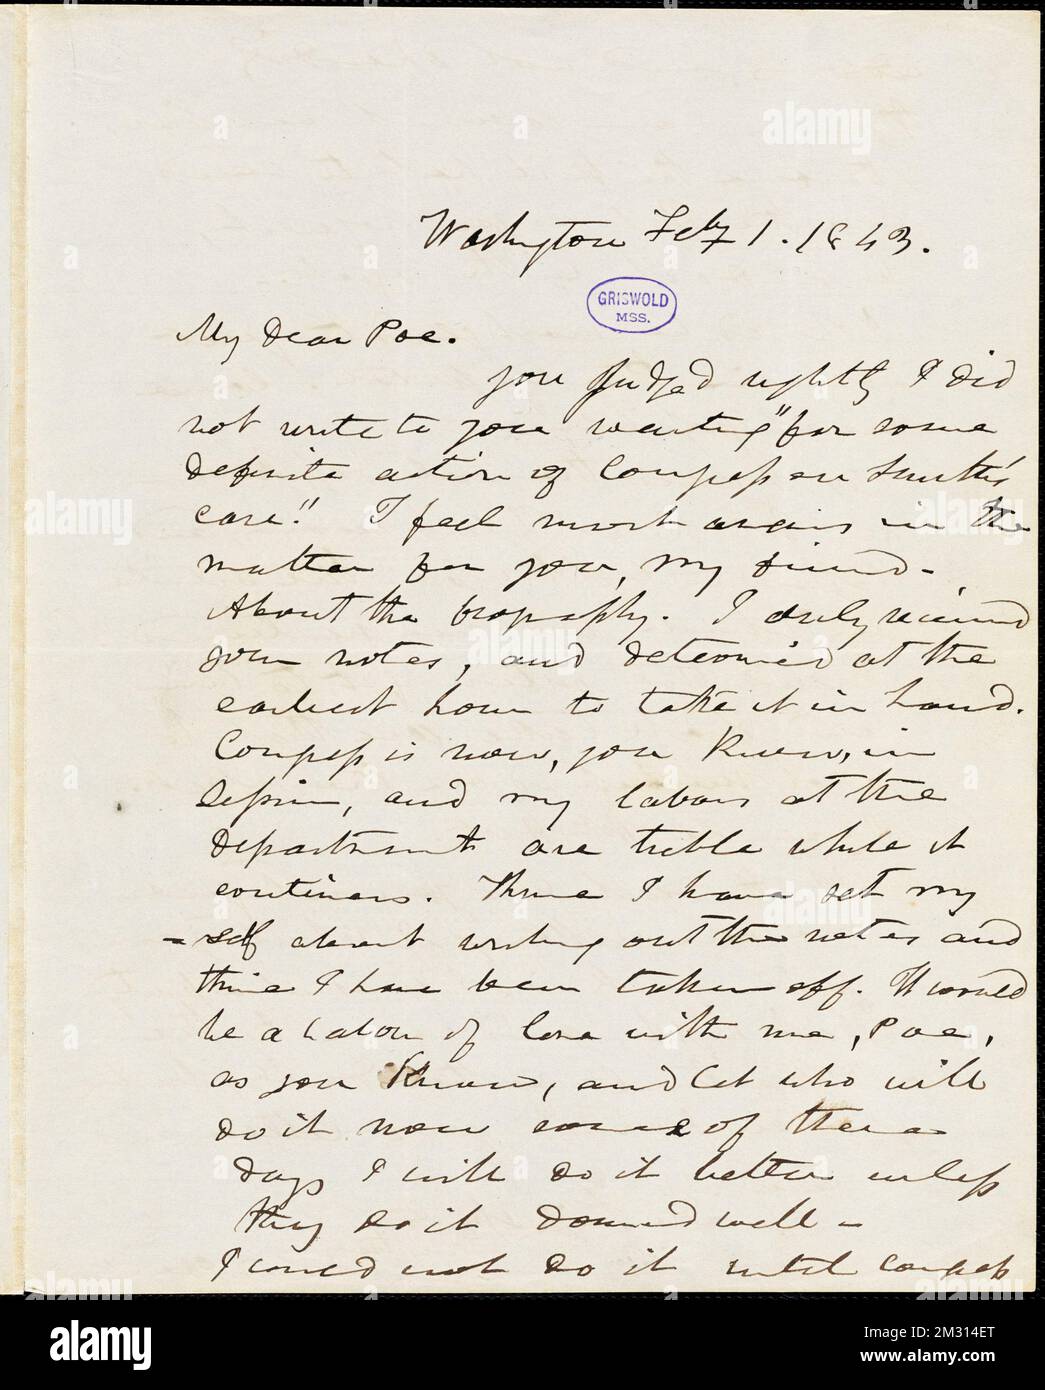 Washington Feby 1. 1843.
GRISWOLD
MSS.
My Dear Poe.
you judged rightly I did
not write to you waiting "for some
definite action of Congress on Smith's
case." I feel much anxious in the
matter for you, my friend -
About the biography. I duly received
your notes, and determined at the
earliest hour to take it in hand.
Congress is now, you know, in
session, and my labors at the
department are treble while it
continues. Thrice I have set my
= self about writing out the notes and
thrice I have been taken off. It would
be a labor of love with me, Poe,
as you know, and let who will
do it now some of these
days I will do it better unless
they do it damned well -
I could not do it until congress
alamy
Image ID: 2M314ET
www.alamy.com